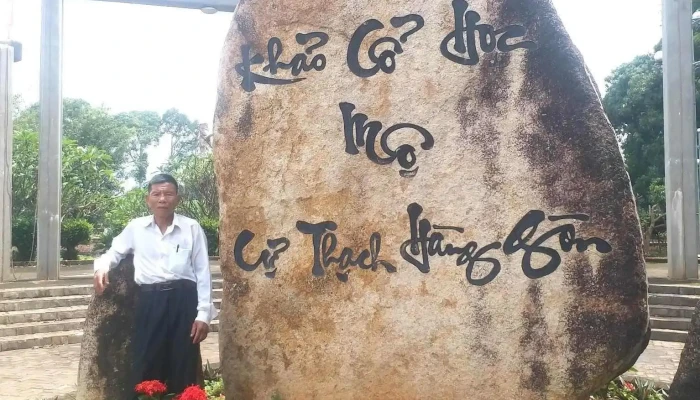 Khảo Cổ Học
Mộ
Cự Thạch Hàng Gòn